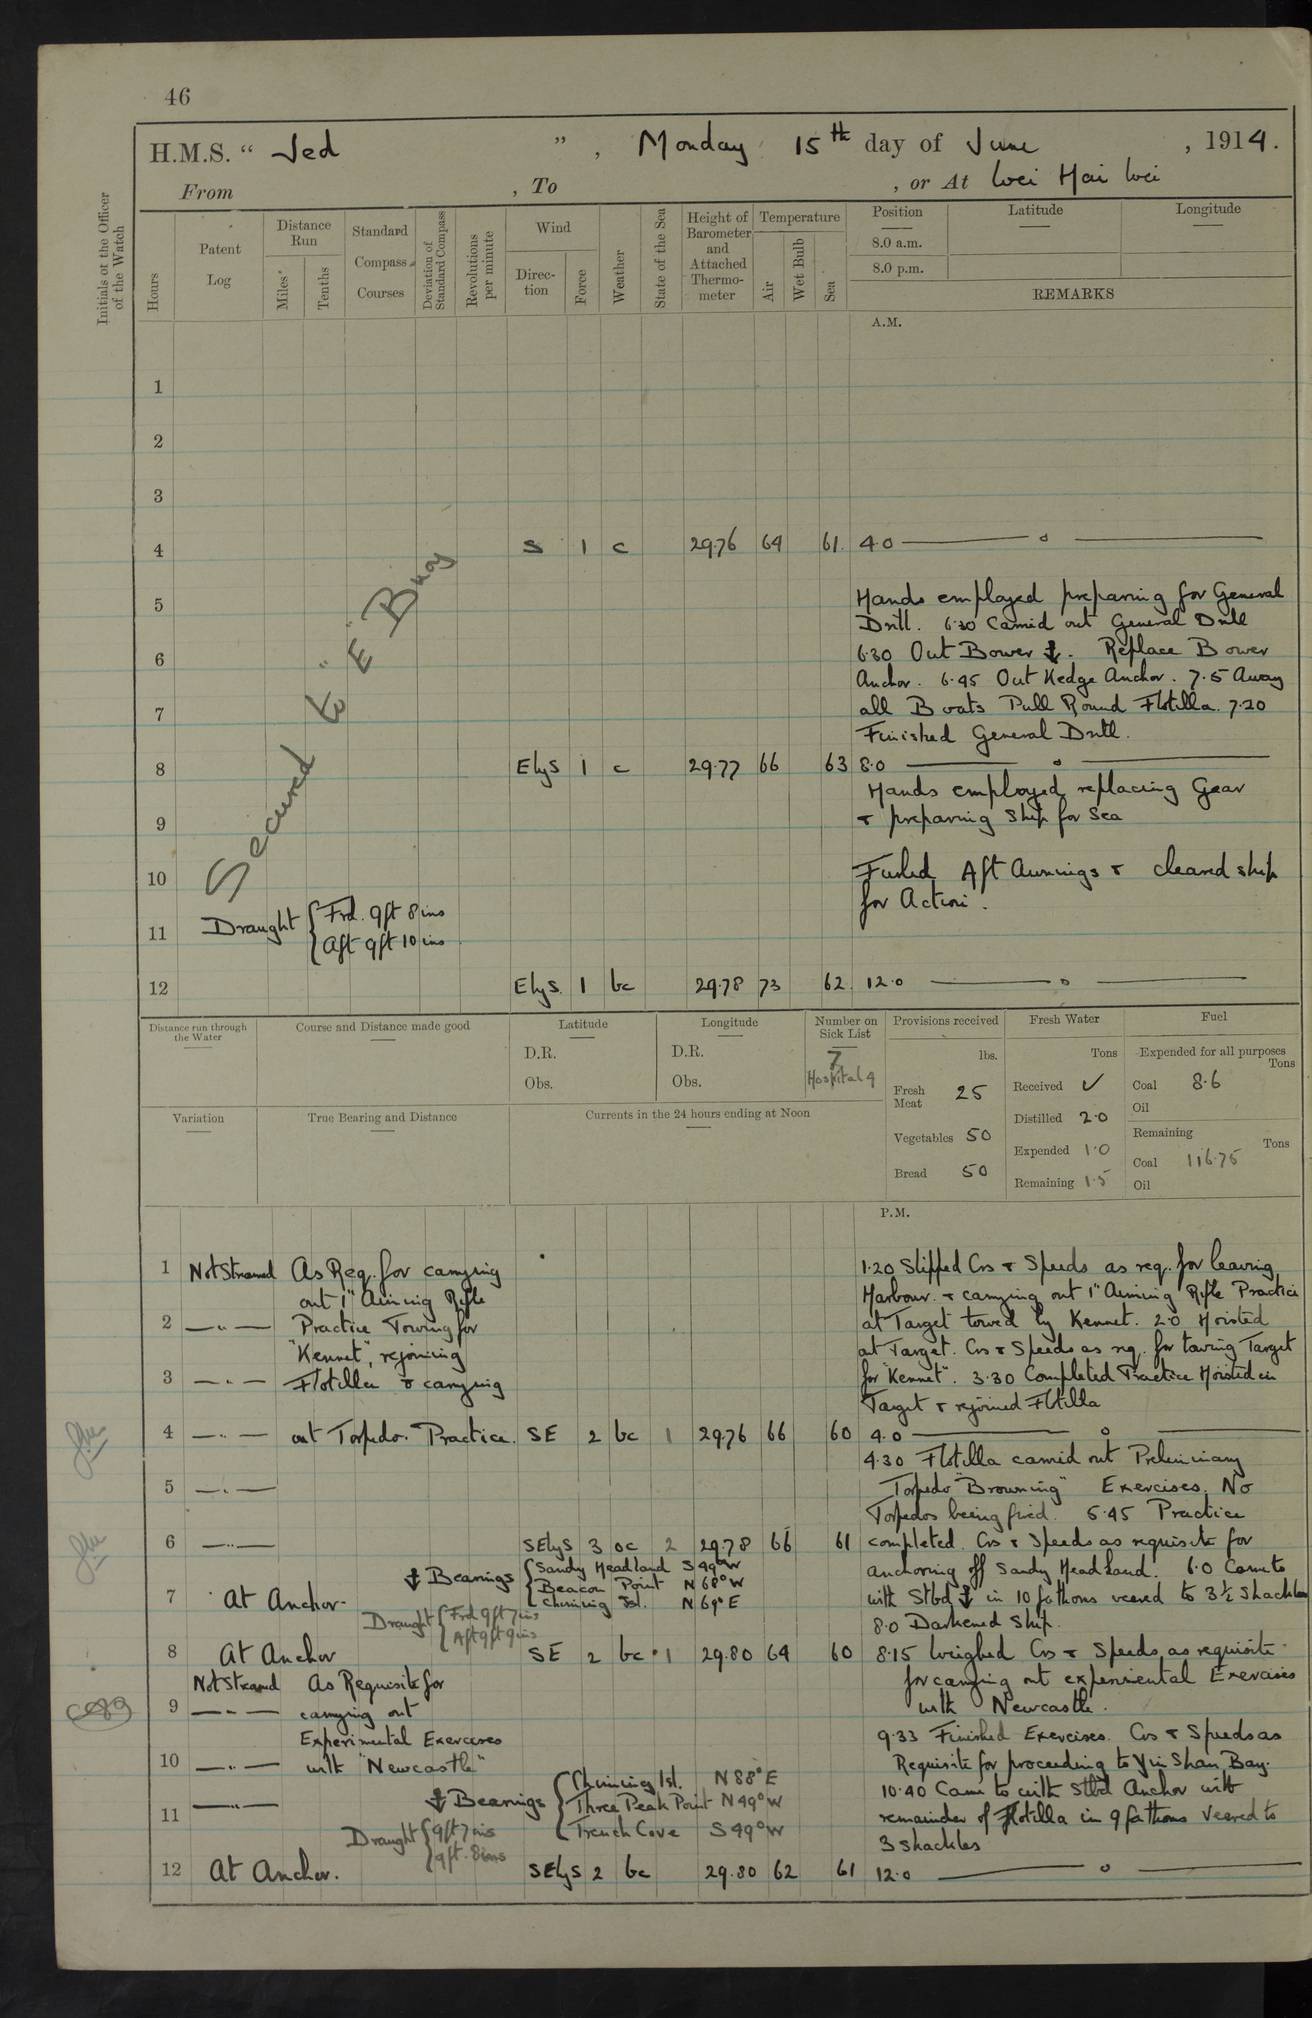 46
H.M.S. “ Jed ” , Monday 15th day of June , 1914.
From , To , or At Wei Hai Wei
Initials of the Officer of the Watch
Hours
Patent Log
Distance Run
Miles
Tenths
Standard Compass Courses
Deviation of Standard Compass
Revolutions per minute
Wind
Direc-tion
Force
Weather
State of the Sea
Height of Barometer and Attached Thermo-meter
Temperature
Air
Wet Bulb
Sea
Position Latitude Longitude
8.0 a.m.
8.0 p.m.
REMARKS
A.M.
1
2
3
4 S 1 c 29.76 64 61 4.0
5 Hands employed preparing for General
Drill. 6.30 Carried out General Drill
6 6.30 Out Bower ⚓. Replace Bower
Anchor. 6.45 Out Kedge Anchor. 7.5 Away
7 all Boats Pull Round Flotilla. 7.20
Finished General Drill.
Secured to "E" Buoy
8 ElyS 1 c 29.77 66 63 8.0
Hands employed replacing Gear
9 & preparing Ship for Sea
10 Furled Aft Awnings & cleared ship
for Action.
11 Draught { Frd. 9ft 8ins
Aft 9ft 10ins
12 ElyS. 1 bc 29.78 73 62. 12.0
Distance run through the Water
Course and Distance made good
Latitude
D.R.
Obs.
Longitude
D.R.
Obs.
Number on Sick List
7
Hospital 4
Provisions received
lbs.
Fresh Meat 25
Vegetables 50
Bread 50
Fresh Water
Tons
Received ✓
Distilled 2.0
Expended 1.0
Remaining 1.5
Fuel
Expended for all purposes
Tons
Coal 8.6
Oil
Remaining
Tons
Coal 116.75
Oil
Variation
True Bearing and Distance
Currents in the 24 hours ending at Noon
P.M.
1 Not Streamed As Req. for carrying 1.20 Slipped Cos & Speeds as req. for leaving
out 1" Aiming Rifle Harbour. & carrying out 1" Aiming Rifle Practice
2 —"— Practice Towing for at Target towed by Kennet. 2.0 Hoisted
"Kennet", rejoining at Target. Cos & Speeds as req. for towing Target
3 —"— Flotilla & carrying for "Kennet". 3.30 Completed Practice Hoisted in
Target & rejoined Flotilla
4 —"— out Torpedo. Practice. SE 2 bc 1 29.76 66 60 4.0
4.30 Flotilla carried out Preliminary
5 —"— Torpedo "Browning" Exercises. No
Torpedos being fired. 5.45 Practice
6 —"— SElyS 3 oc 2 29.78 66 61 completed. Cos & Speeds as requisite for
⚓ Bearings { Sandy Headland S 49° W anchoring off Sandy Headland. 6.0 Came to
Beacon Point N 68° W
7 At Anchor. Chiming Isl. N 69° E with Stbd ⚓ in 10 fathoms veered to 3½ Shackles
Draught { Frd 9ft 7ins
Aft 9ft 9ins
8.0 Darkened Ship.
8 At Anchor SE 2 bc 1 29.80 64 60 8.15 Weighed Cos & Speeds as requisite
Not Streamed As Requisite for for carrying out experimental Exercises
9 —"— carrying out with Newcastle.
Experimental Exercises 9.33 Finished Exercises. Cos & Speeds as
10 —"— with "Newcastle" Requisite for proceeding to Yin Shan Bay.
—"— ⚓ Bearings { Chiming Isl. N 88° E
Three Peak Point N 49° W
Trench Cove S 49° W
10.40 Came to with Stbd Anchor with
11 remainder of Flotilla in 9 fathoms Veered to
Draught { 9ft 7ins
9ft. 8ins
3 shackles
12 At Anchor. SElyS 2 bc 29.80 62 61 12.0